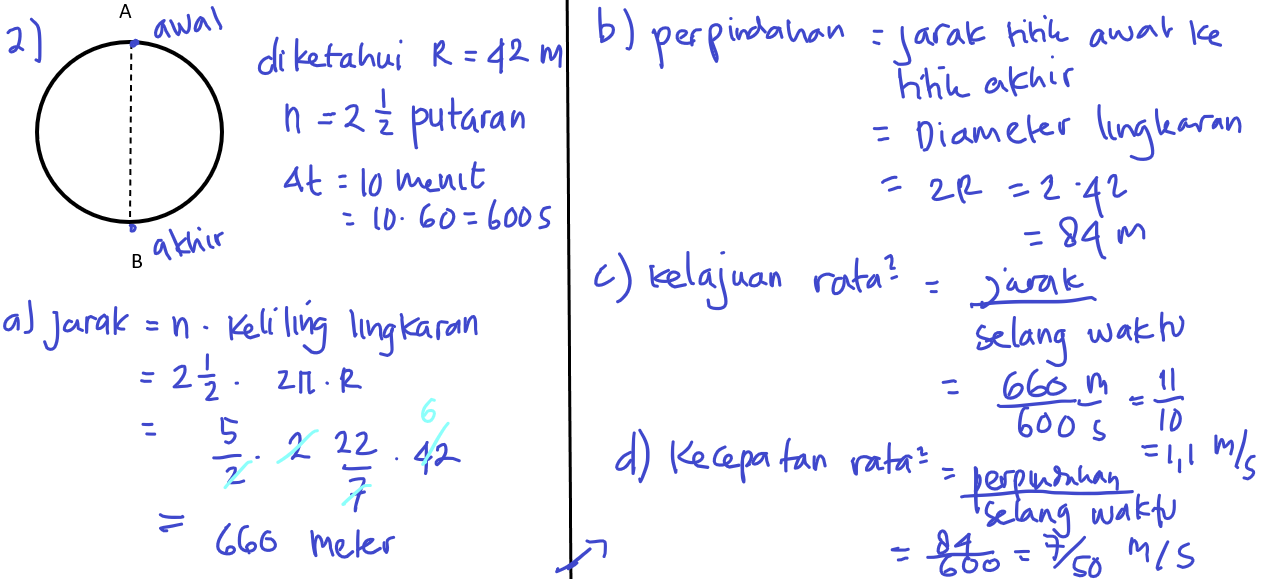 2)
A
awal
akhir
B
diketahui R = 42 m
n = 2 1/2 putaran
Δt = 10 menit
= 10 . 60 = 600 s
a) jarak = n . keliling lingkaran
= 2 1/2 . 2π . R
= 5/2 . 2 22/7 . 42 6
= 660 meter
b) perpindahan = jarak titik awal ke
titik akhir
= Diameter lingkaran
= 2R = 2 . 42
= 84 m
c) kelajuan rata² = jarak / selang waktu
= 660 m / 600 s = 11/10
= 1,1 m/s
d) kecepatan rata² = perpindahan / selang waktu
= 84/600 = 7/50 m/s